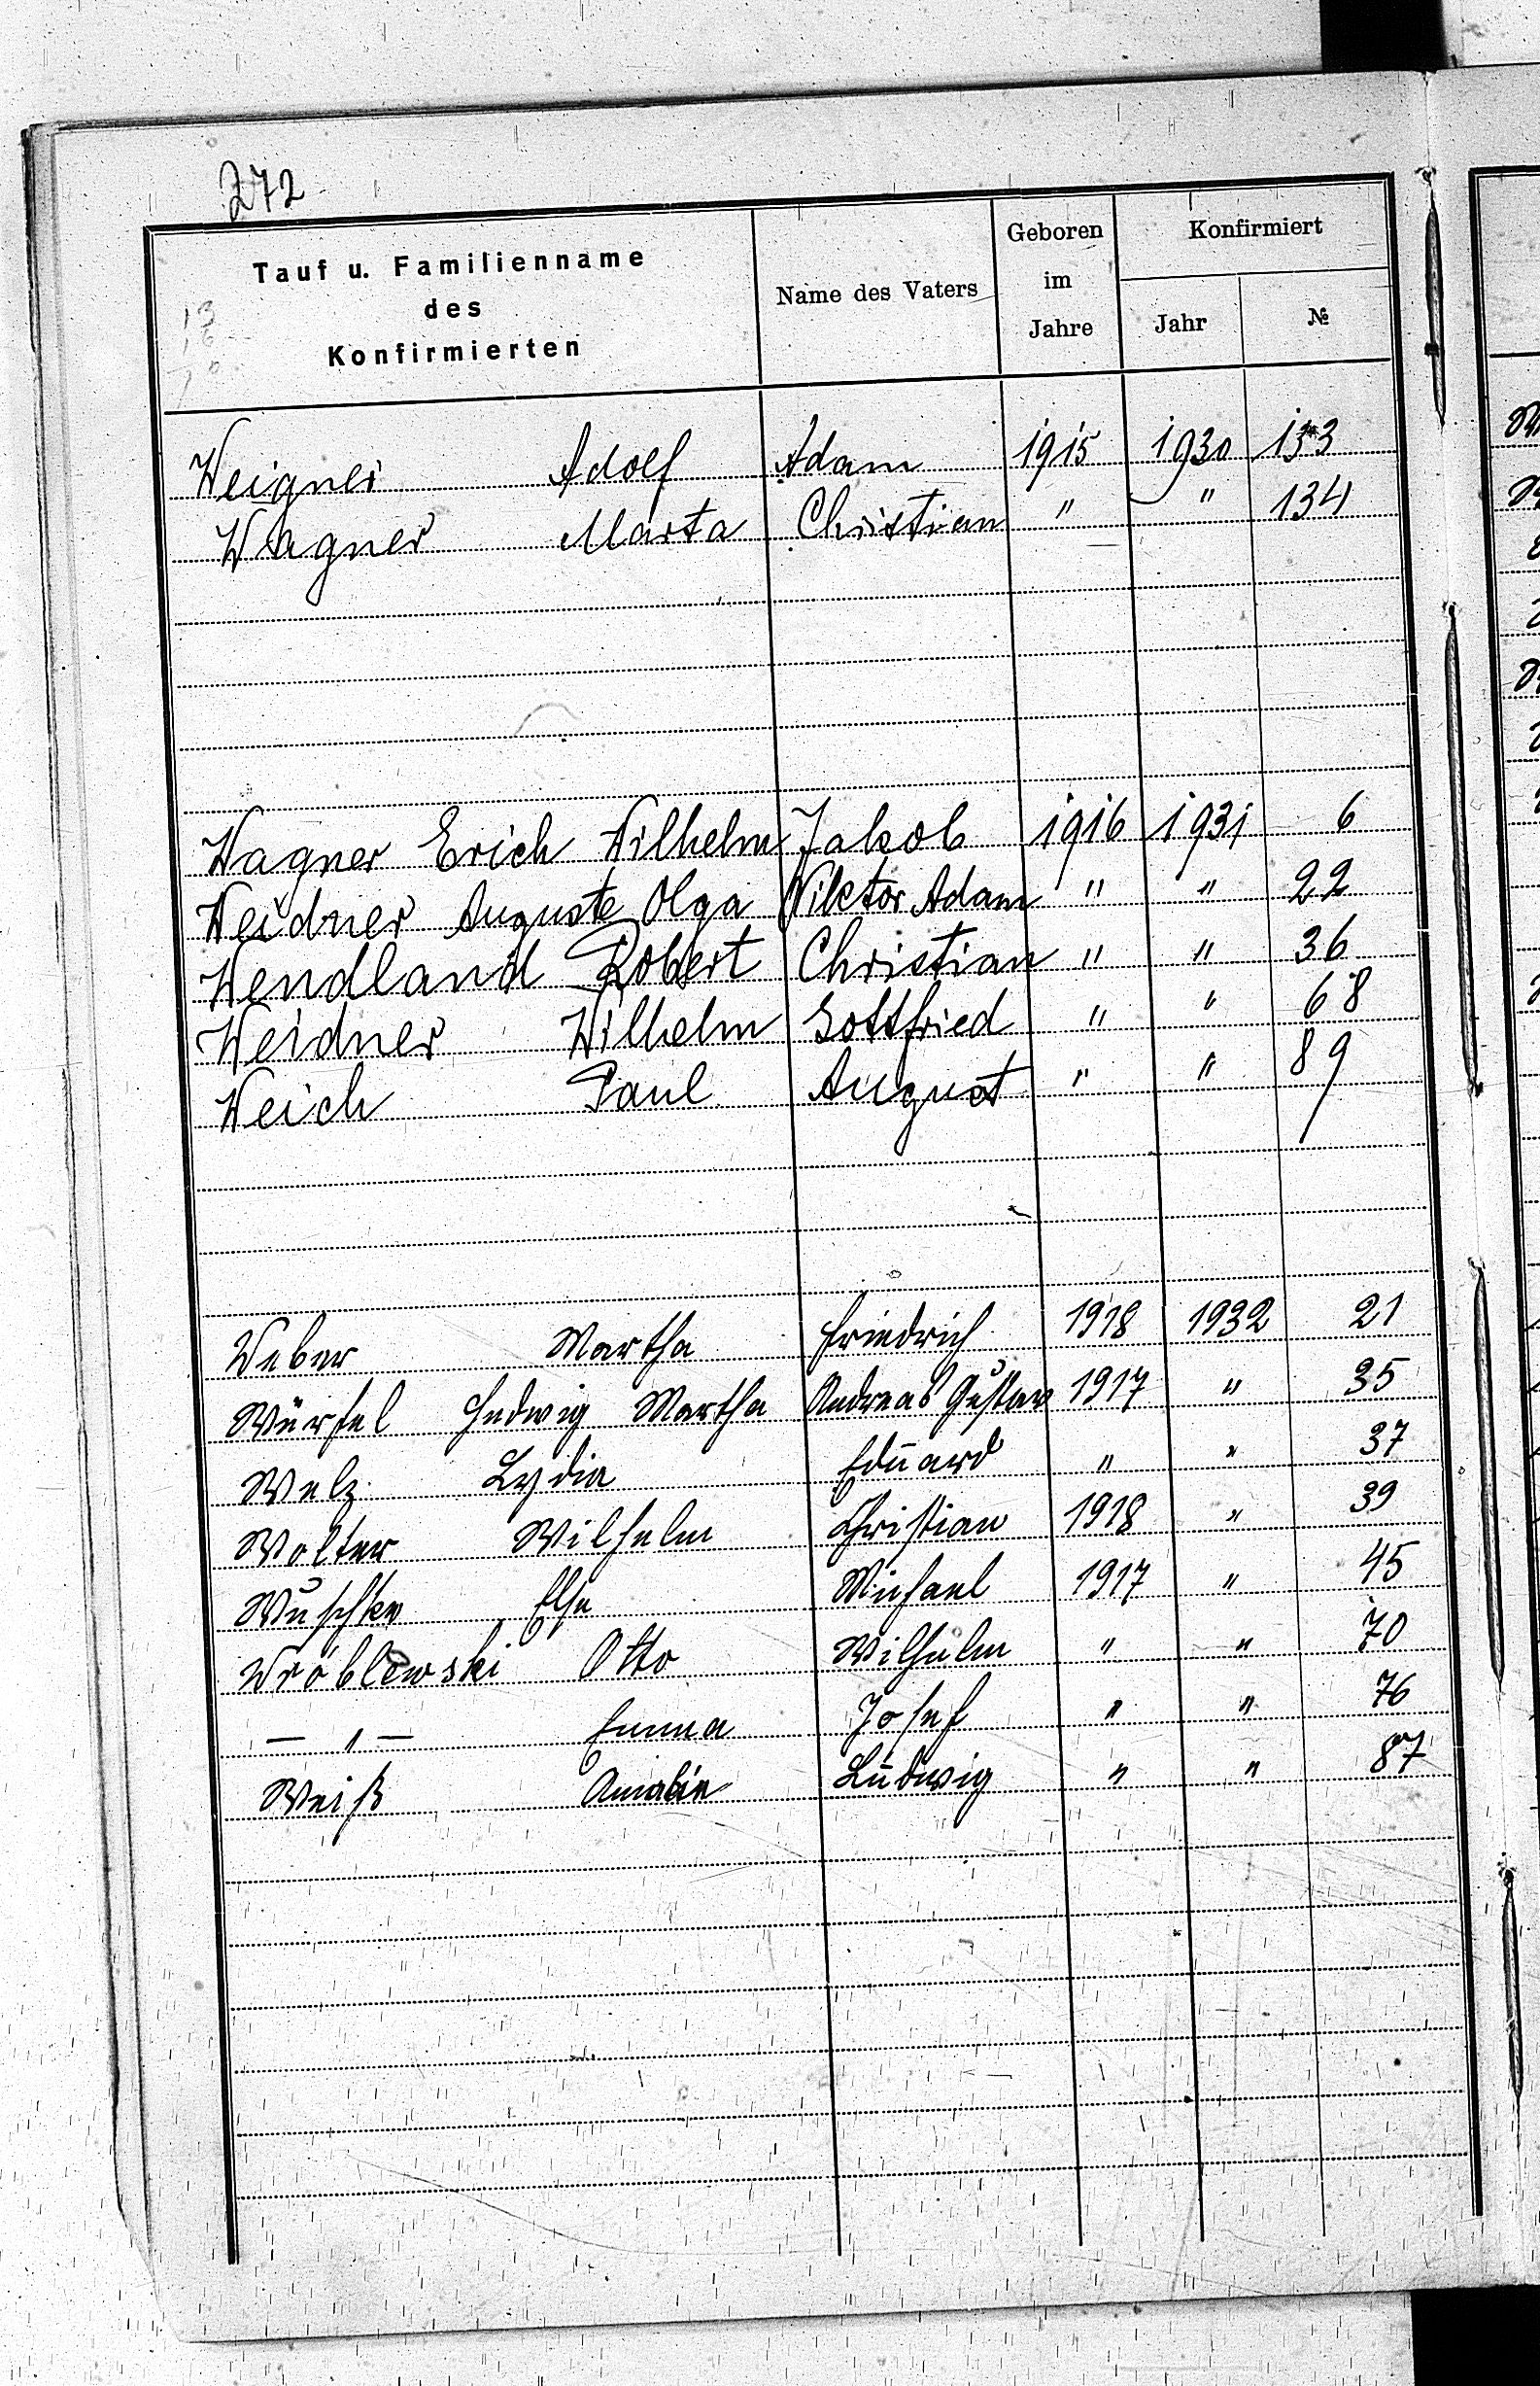 272
Tauf u. Familienname des Konfirmierten | Name des Vaters | Geboren im Jahre | Konfirmiert Jahr | №
Weigner Adolf Adam 1915 1930 133
Wagner Marta Christian " " 134
Wagner Erich Wilhelm Jakob 1916 1931 6
Weidner Auguste Olga Viktor Adam " " 22
Wendland Robert Christian " " 36
Weidner Wilhelm Gottfried " " 68
Weich Paul August " " 89
Weber Martha Friedrich 1918 1932 21
Würfel Hedwig Martha Andreas Gustav 1917 " 35
Welz Lydia Eduard " " 37
Wolter Wilhelm Christian 1918 " 39
Wuschke Else Michael 1917 " 45
Wróblewski Otto Wilhelm " " 70
— " — Emma Josef " " 76
Weiß Amalie Ludwig " " 87